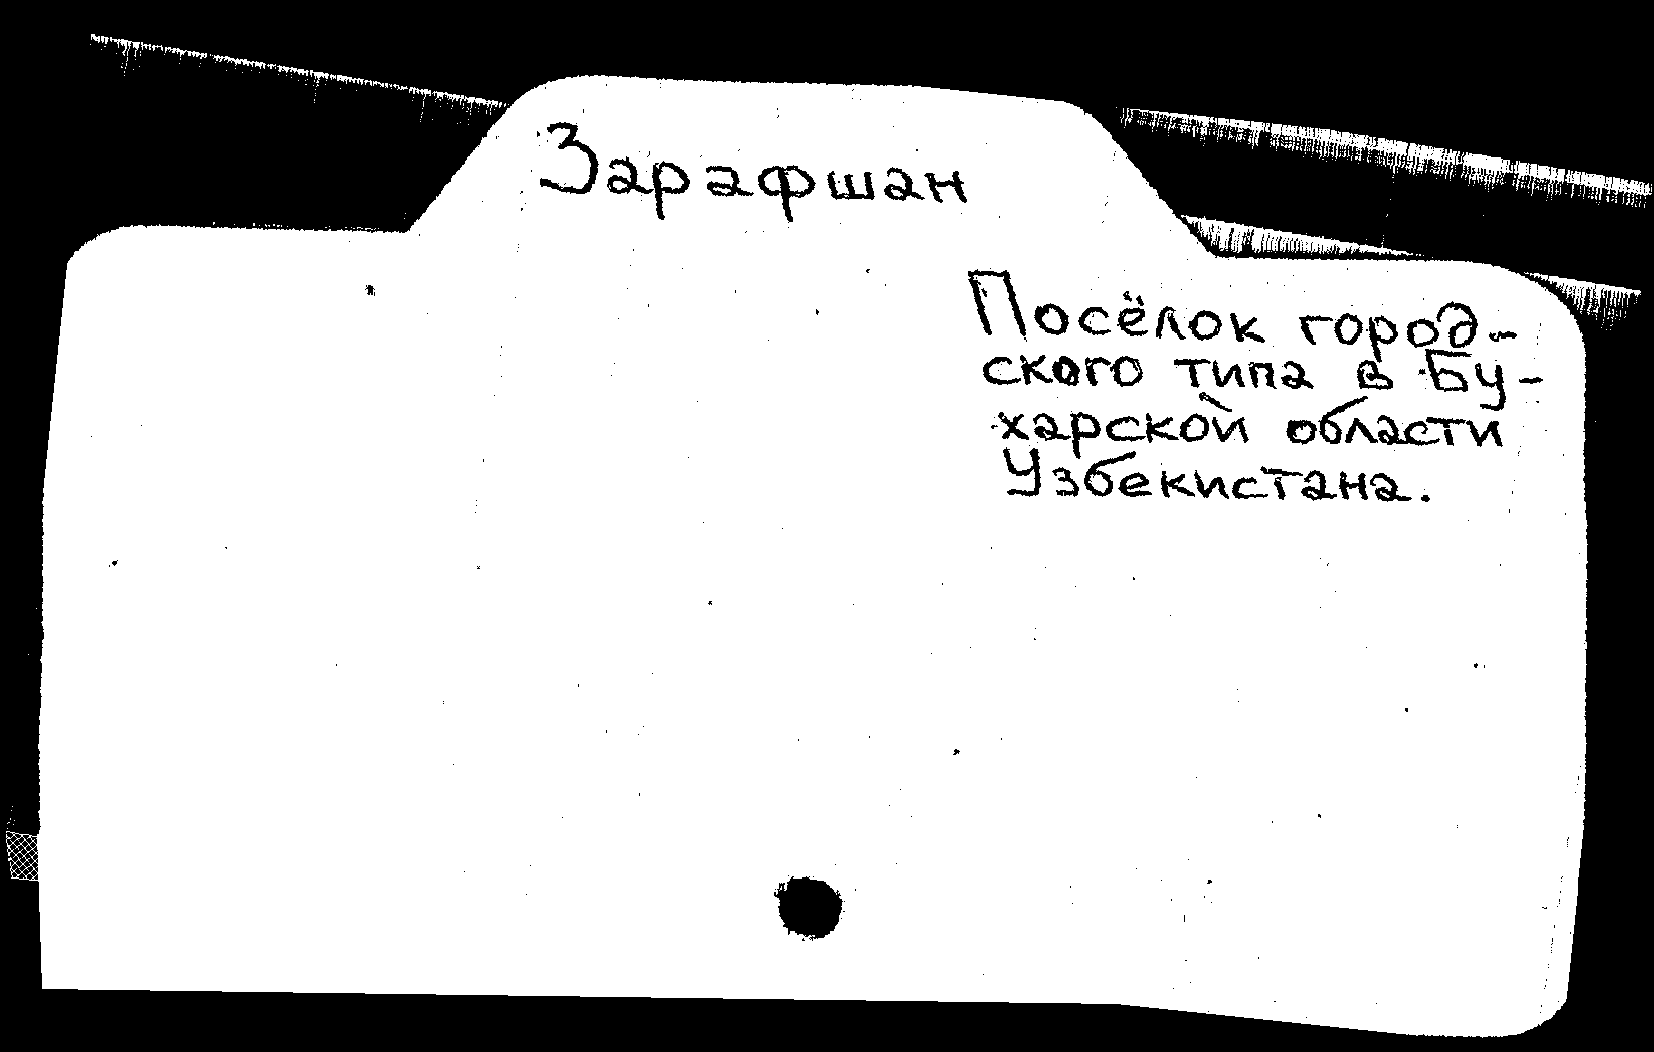 Зарафшан
Посёлок город-
ского типа в Бу-
харской области
Узбекистана.